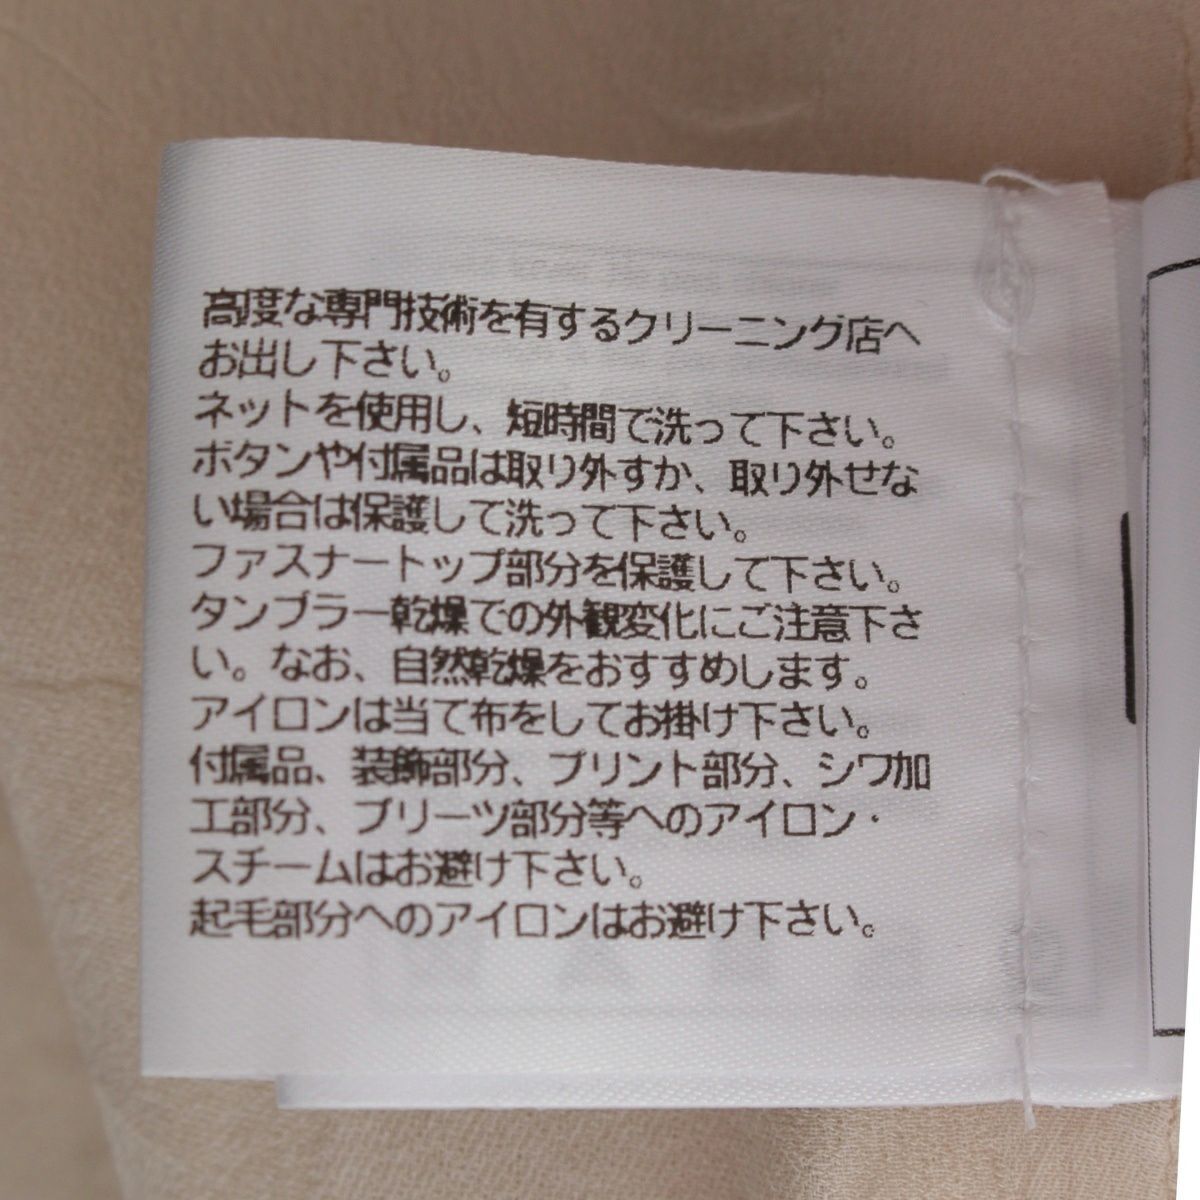 高度な専門技術を有するクリーニング店へ
お出し下さい。
ネットを使用し、短時間で洗って下さい。
ボタンや付属品は取り外すか、取り外せな
い場合は保護して洗って下さい。
ファスナートップ部分を保護して下さい。
タンブラー乾燥での外観変化にご注意下さ
い。なお、自然乾燥をおすすめします。
アイロンは当て布をしてお掛け下さい。
付属品、装飾部分、プリント部分、シワ加
工部分、プリーツ部分等へのアイロン・
スチームはお避け下さい。
起毛部分へのアイロンはお避け下さい。